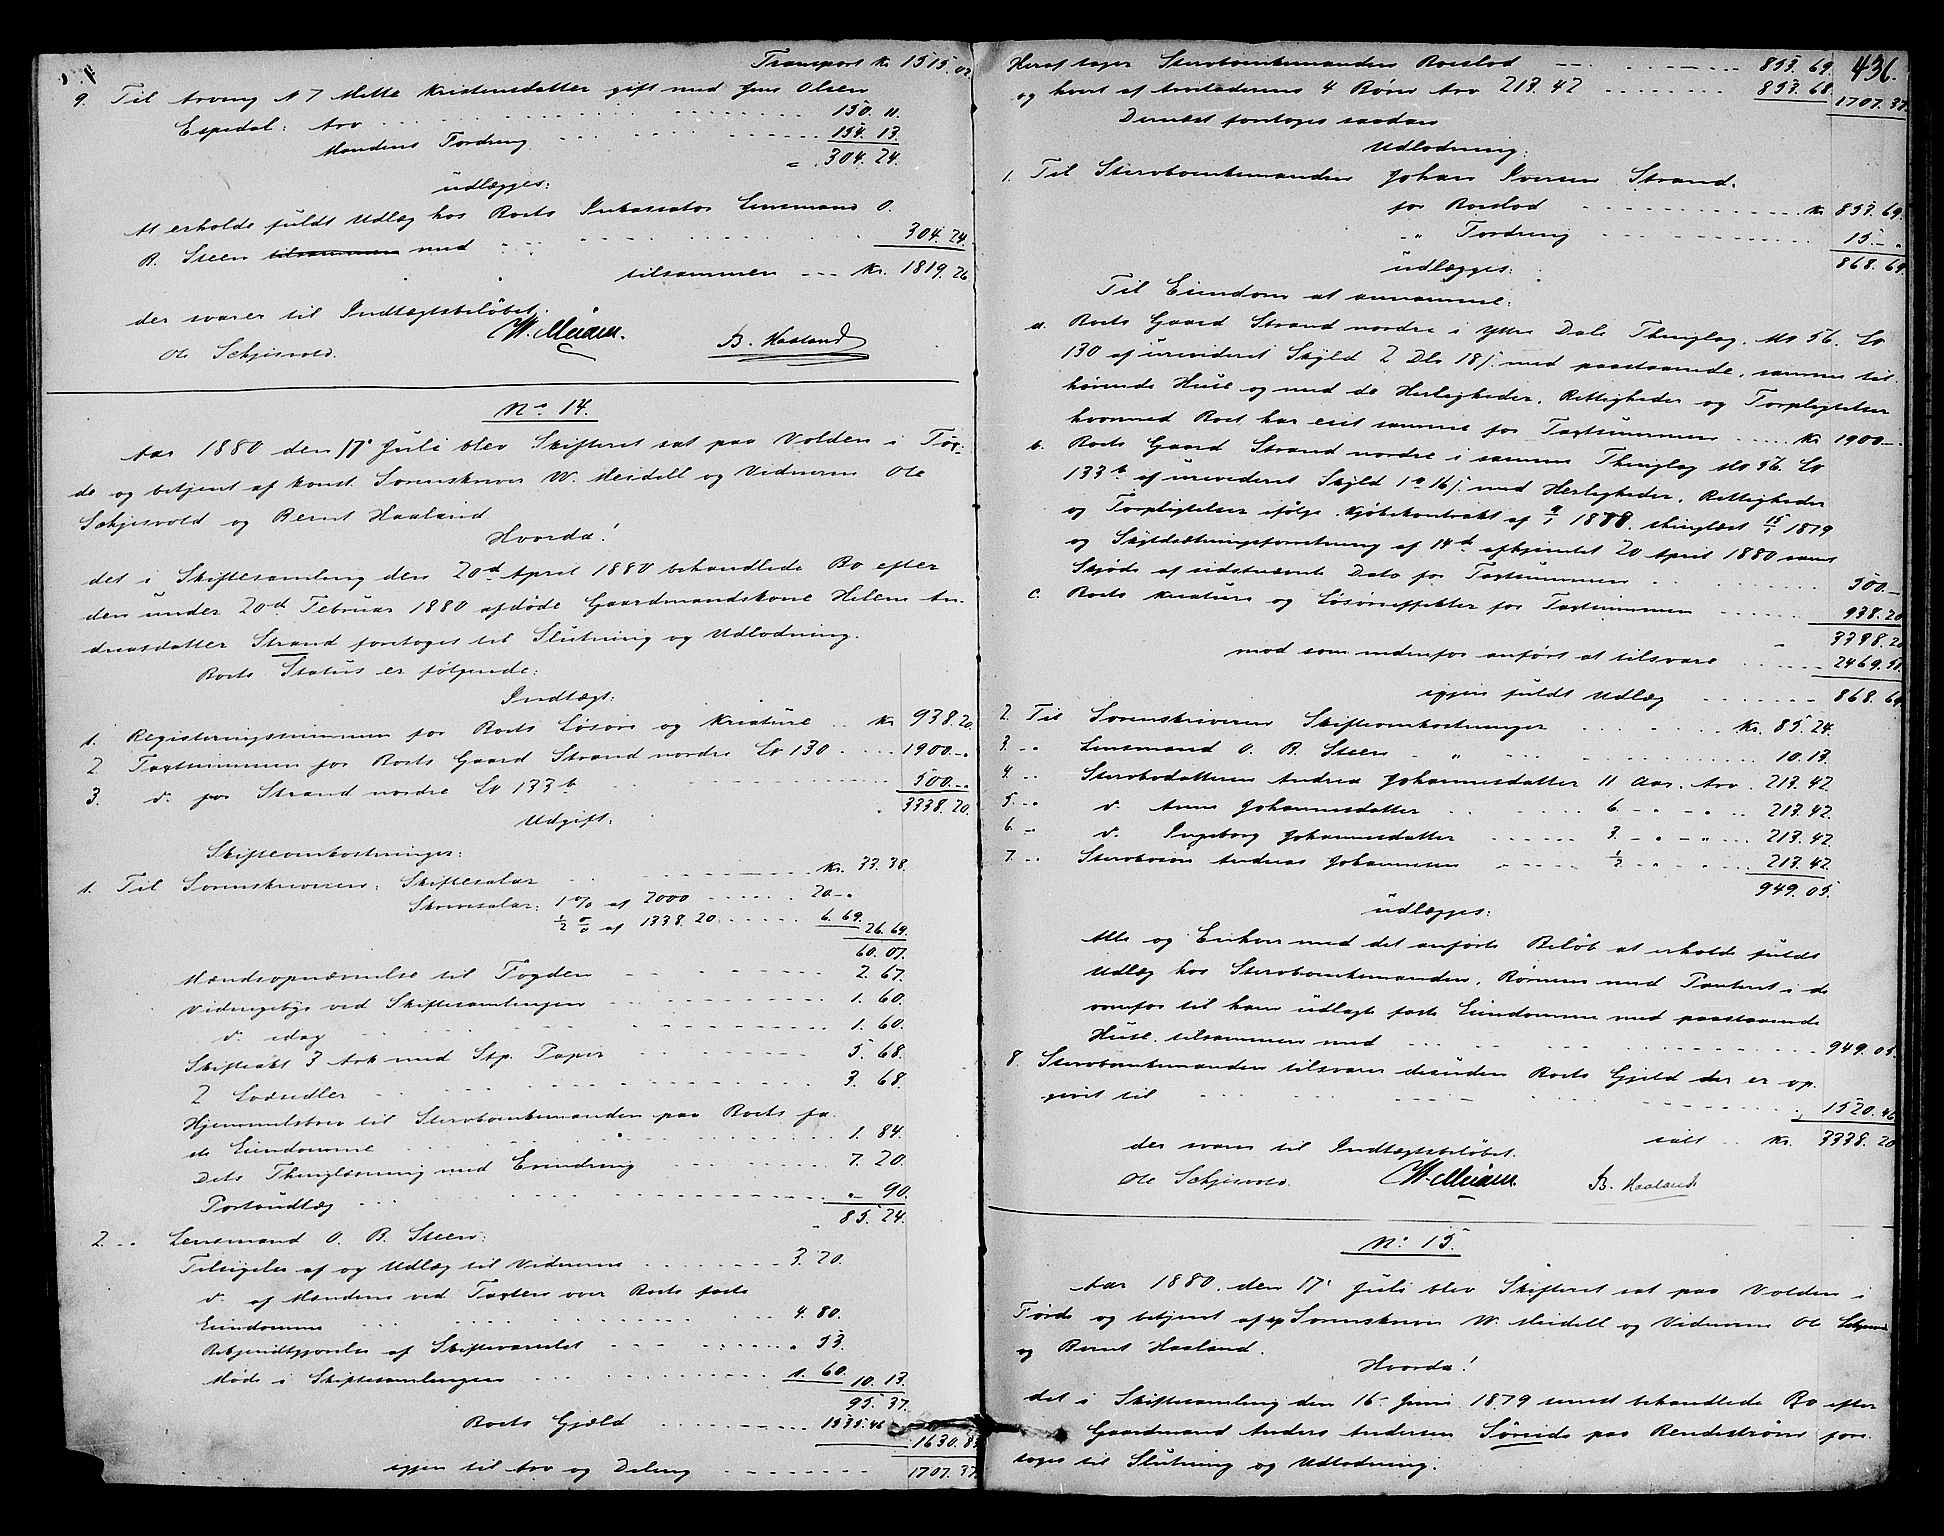 Transport Kr 1515.02
9. Til Arving N 7 Mette Kristensdatter gift med Jens Olsen
Espedal: Arv 150. 11.
Mandens Fordring 154. 13.
" 304. 24.
udlægges:
At erholde fuldt Udlæg hos Boets Inkassator Lensmand O.
B. Steen tilsammen med 304. 24.
tilsammen Kr. 1819. 26
der svarer til Indtægtsbeløbet.
Ole Schjesvold. W. Meidell. B. Haaland
No 14.
Aar 1880 den 17. Juli blev Skifteret sat paa Volden i Før-
de og betjent af konst. Sorenskriver W. Meidell og Vidnerne Ole
Schjesvold og Bernt Haaland
Hvorda!
det i Skiftesamling den 20d April 1880 behandlede Bo efter
den under 20d Februar 1880 afdøde Gaardmandskone Helene An-
dreasdatter Strand foretoges til Slutning og Udlodning.
Boets Status er følgende:
Indtægt:
1. Registeringssummen for Boets Løsøre og Kreature Kr 938. 20.
2. Taxtsummen for Boets Gaard Strand nordre Lb 130 1900. -"
3. d. for Strand nordre Lb 133b 500. -"
" 3338. 20.
Udgift:
Skifteomkostninger:
1. Til Sorenskriveren: Skiftesalær Kr. 33. 38.
Skriversalær: 1 % af 2000 20-"
½ % af 1338. 20 6. 69. 26. 69.
60. 07.
Mændsopnævnelse til Fogden 2. 67.
Vidnegebyr ved Skiftesamlingen 1. 60.
d. idag 1. 60.
Skifteakt 3 Ark med Stp. Papir 5. 68.
2 Lodsedler 3. 68.
Hjemmelsbrev til Stervboenkemanden paa Boets fa-
ste Eiendomme 1. 84.
Dets Thinglæsning med Erindring 7. 20.
Portoudlæg " 90.
" 85. 24.
2. " Lensmand O. B. Steen:
Tilsigelse af og Udlæg til Vidnerne 3. 20.
d. af Mændene ved Taxten over Boets faste
Eiendomme 4. 80.
Bekjendtgjørelse af Skiftevarselet " 53.
Møde i Skiftesamlingen 1. 60. 10. 13.
95. 37.
Boets Gjæld 1535. 46
1630. 83
igjen til Arv og Deling 1707. 37.
436.
Heraf tager Stervboenkemanden Boeslod 853. 69.
og hvert af Arvladerens 4 Børn Arv 213. 42 853. 68. 1707. 37.
Dernæst foretoges saadan
Udlodning:
1. Til Stervboenkemanden Johan Iversen Strand.
for Boeslod Kr 853. 69.
" Fordring 15-"
868. 69.
udlægges:
Til Eiendom at annamme:
a. Boets Gaard Strand nordre i Ytre Dals Thinglag, M. No 56. Lb
130 af urevideret Skyld 2 Dlr 18 /. med paastaaende, samme til-
hørende Huse og med de Herligheder, Rettigheder og Forpligtelser
hvormed Boet har eiet samme for Taxtsummen Kr 1900-"
b. Boets Gaard Strand nordre i samme Thinglag M No 56. Lb
133b af urevideret Skyld 1 o 16 /. med Herligheder, Rettigheder
og Forpligtelser ifølge Kjøbekontrakt af 9/1 1878. thinglæst 15/1 1879
og Skylddelingsforretning af 14de afhjemlet 20 April 1880 samt
Skjøde af sidstnævnte Dato for Taxtsummen 500-
c. Boets Kreature og Løsøreeffekter for Taxtsummen 938. 20
3338. 20
mod som nedenfor anført at tilsvare 2469. 51
igjen fuldt Udlæg 868. 69
2. Til Sorenskriveren Skifteomkostninger Kr. 85. 24.
3. " Lensmand O. B. Steen " 10. 13.
4. " Stervbodatteren Andrea Johannesdatter 11 Aar. Arv. 213. 42.
5. " d. Anna Johannesdatter 6 - " - " 213. 42.
6. " d. Ingeborg Johannesdatter 3 - " - " 213. 42.
7. " Stervbosøn Andreas Johannesen ½ " " 213. 42.
949. 05.
udlægges:
Alle og Enhver med det anførte Beløb at erholde fuldt
Udlæg hos Stervboenkemanden, Børnene med Panteret i de
ovenfor til ham udlagte faste Eiendomme med paastaaende
Huse, tilsammen med 949. 05.
8. Stervboenkemanden tilsvarer desuden Boets Gjæld der er op-
givet til 1520. 46
der svarer til Indtægtsbeløbet. talt Kr. 3338. 20
Ole Schjesvold. W. Meidell. B. Haaland.
No 15.
Aar 1880. den 17. Juli blev Skifteret sat paa Volden i
Førde og betjent af Sorenskriver W. Meidell og Vidnerne Ole Schjesvold
og Bernt Haaland.
Hvorda!
det i Skiftesamling den 16 Juni 1879 senest behandlede Bo efter
Gaardmand Anders Andersen Søreide paa Rendestrøm fore-
toges til Slutning og Udlodning.